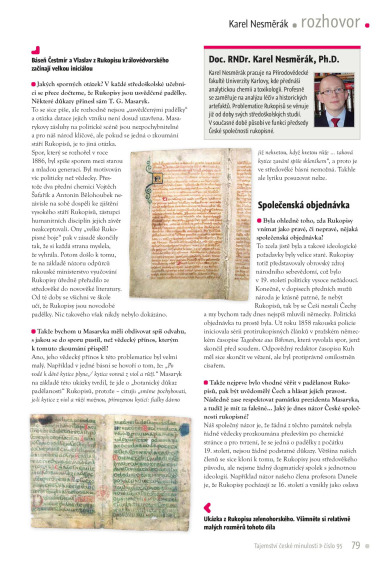 Karel Nesměrák • rozhovor •
Báseň Čestmír a Vlaslav z Rukopisu královédvorského
začínají velkou iniciálou
● Jakých sporných otázek? V každé středoškolské učebni-
ci se přece dočteme, že Rukopisy jsou usvědčené padělky.
Některé důkazy přinesl sám T. G. Masaryk.
To se pletete. Rukopisy ale nejsou „usvědčenými padělky"
a otázka datace jejich vzniku není dosud uzavřena. Masa-
rykovy zásluhy na politické scéně jsou nezpochybnitelné
a pro náš národ klíčové, ale pokud se jedná o zkoumání
stáří Rukopisů, je to jiná otázka.
Spor, který se rozhořel v roce
1886, byl spíše sporem mezi starou
a mladou generací. Byl motivován
víc politicky než vědecky. Přes-
tože dva přední chemici Vojtěch
Šafařík a Antonín Bělohoubek ne-
závisle na sobě dospěli ke zjištění
vysokého stáří Rukopisů, zástupci
humanitních disciplín jejich závěr
neakceptovali. Ony „velké Ruko-
pisné boje" pak v zásadě skončily
tak, že si každá strana myslela,
že vyhrála. Potom došlo k tomu,
že na základě názoru odpůrců
rakouské ministerstvo vyučování
Rukopisy úředně přeřadilo ze
středověké do novověké literatury.
Od té doby se všichni ve škole
učí, že Rukopisy jsou novodobé
padělky. Nic takového však nikdy nebylo dokázáno.
● Takže bychom u Masaryka měli obdivovat spíš odvahu,
s jakou se do sporu pustil, než vědecký přínos, kterým
k tomuto zkoumání přispěl?
Ano, jeho vědecký přínos k této problematice byl velmi
malý. Například v jedné básni se hovoří o tom, že „Po
vodě k dāvě kytice plyne,/ kytice vonná z viol a růží." Masaryk
na základě této ukázky tvrdil, že jde o „botanický důkaz
padělanosti" Rukopisů, protože – cituji: „můžeme pochybovati,
jeli kytice z viol a růží možnou, přirozenou kyticí: fialky dávno
Doc. RNDr. Karel Nesměrák, Ph.D.
Karel Nesměrák pracuje na Přírodovědecké
fakultě Univerzity Karlovy, kde přednáší
analytickou chemii a toxikologii. Profesně
se zaměřuje na analýzu léčiv a historických
artefaktů. Problematice Rukopisů se věnuje
již od doby svých středoškolských studií.
V současné době působí ve funkci předsedy
České společnosti rukopisné.
již nekvetou, když kvetou růže ... taková
kytice zavání spíše skleníkem", a proto je
ve středověké básni nemožná. Takhle
ale lyriku posuzovat nelze.
Společenská objednávka
● Byla ohledně toho, zda Rukopisy
vnímat jako pravé, či nepravé, nějaká
společenská objednávka?
To zcela jistě byla a takové ideologické
požadavky byly velice silné. Rukopisy
totiž představovaly obrovský zdroj
národního sebevědomí, což bylo
v 19. století politicky vysoce nežádoucí.
Konečně, v dopisech předních mužů
národa je krásně patrné, že nebýt
Rukopisů, tak by se Češi nestali Čechy
a my bychom tady dnes nejspíš mluvili německy. Politickou
objednávku to prostě byla. Už roku 1858 rakouská policie
iniciovala sérii protirukopisných článků v pražském němec-
kém časopise Tagesbote aus Böhmen, která vyvolala spor, jenž
skončil před soudem. Odpovědný redaktor časopisu Kuh
měl sice skončit ve vězení, ale byl protiprávně omilostněn
císařem.
● Takže nejprve bylo vhodné věřit v padělanost Ruko-
pisů, pak být uvědomělý Čech a hlásat jejich pravost.
Následné zase respektovat památku prezidenta Masaryka,
a tudíž je mít za falešné... Jaký je dnes názor České společ-
nosti rukopisné?
Náš společný názor je, že žádná z těchto památek nebyla
řádně vědecky prozkoumána především po chemické
stránce a pro tvrzení, že se jedná o padělky z počátku
19. století, nejsou žádné podstatné důkazy. Většina našich
členů se sice kloní k tomu, že Rukopisy jsou středověkého
původu, ale nejsme žádný dogmatický spolek s jednotnou
ideologií. Například názor našeho člena profesora Daneše
je, že Rukopisy pocházejí ze 16. století a vznikly jako oslava
Ukázka z Rukopisu zelenohorského. Všimněte si relativně
malých rozměrů tohoto díla
Tajemství české minulosti • číslo 95 79